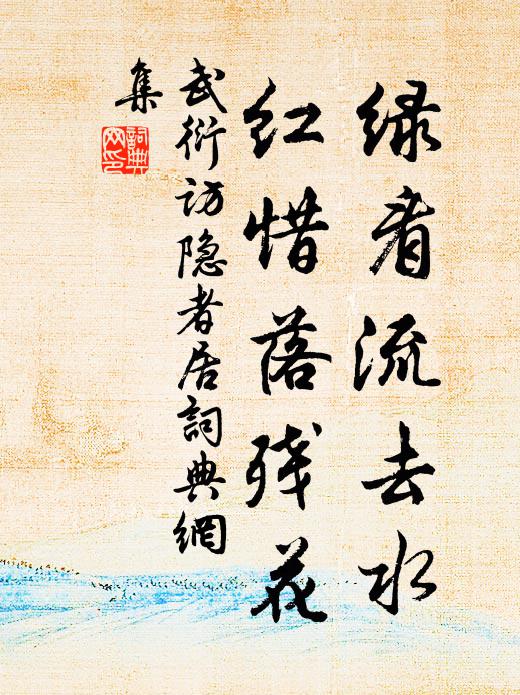 绿看流去水
红惜落残花
武衍访隐者居詞典網
集
詞典網印